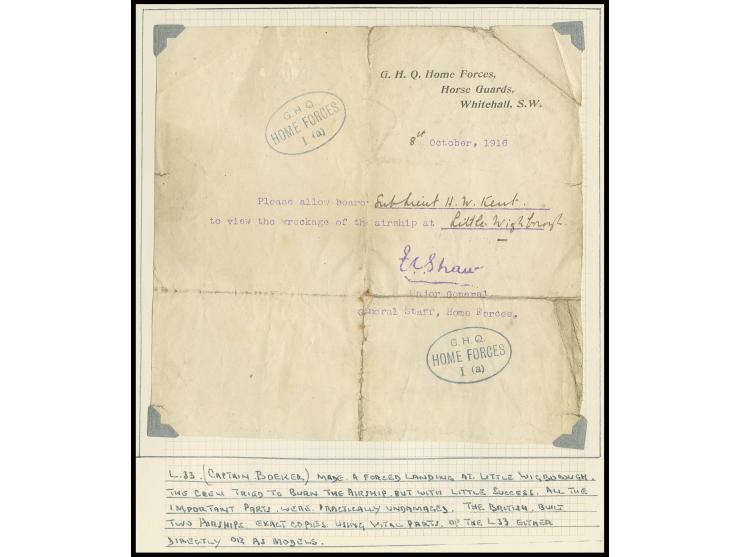 G. H. Q. Home Forces,
Horse Guards,
Whitehall, S.W.
G.H.Q.
HOME FORCES
I (a)
8th October, 1916
Please allow bearer Sub Lieut H. W. Kent.
to view the wreckage of the airship at Little Wighborough.
F.C. Shaw
Major General
General Staff, Home Forces.
G.H.Q.
HOME FORCES
I (a)
L.33 (CAPTAIN BOEKER) MADE A FORCED LANDING AT LITTLE WIGBOROUGH.
THE CREW TRIED TO BURN THE AIRSHIP BUT WITH LITTLE SUCCESS. ALL THE
IMPORTANT PARTS WERE PRACTICALLY UNDAMAGED. THE BRITISH BUILT
TWO AIRSHIPS EXACT COPIES USING VITAL PARTS OF THE L33 EITHER
DIRECTLY OR AS MODELS.